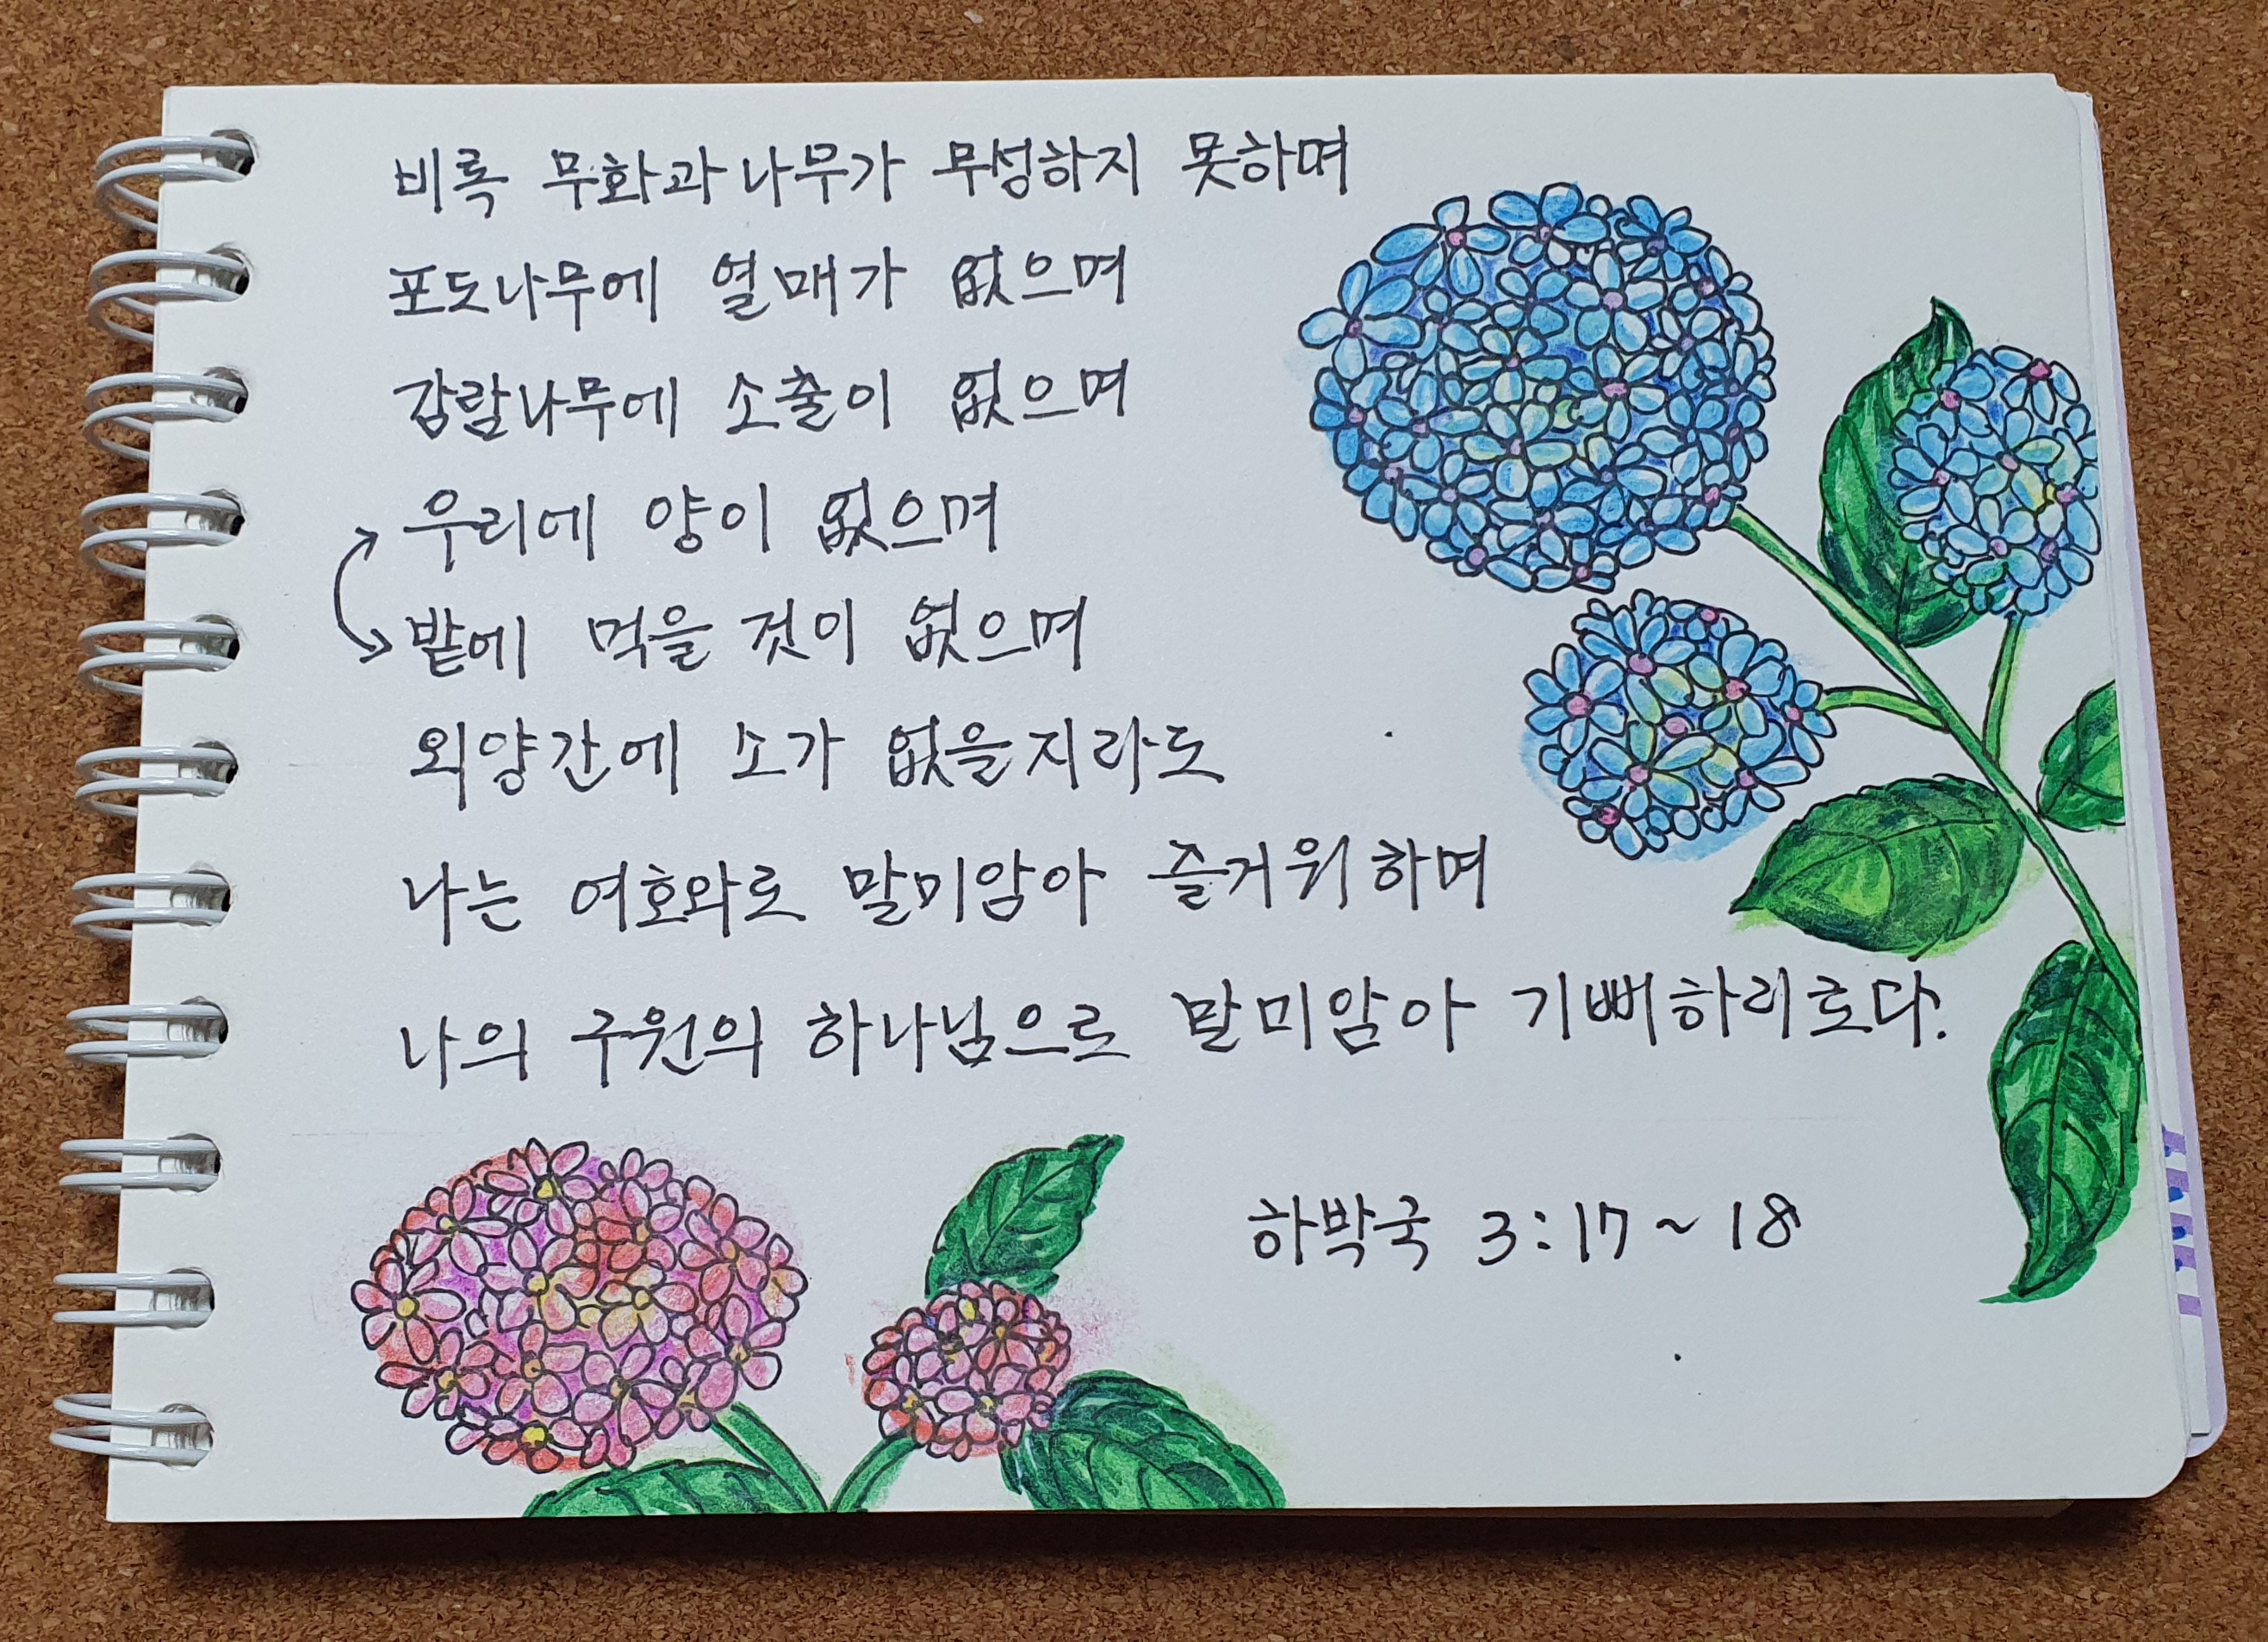 비록 무화과나무가 무성하지 못하며
포도나무에 열매가 없으며
감람나무에 소출이 없으며
우리에 양이 없으며
밭에 먹을 것이 없으며
외양간에 소가 없을지라도
나는 여호와로 말미암아 즐거워하며
나의 구원의 하나님으로 말미암아 기뻐하리로다.
하박국 3:17~18